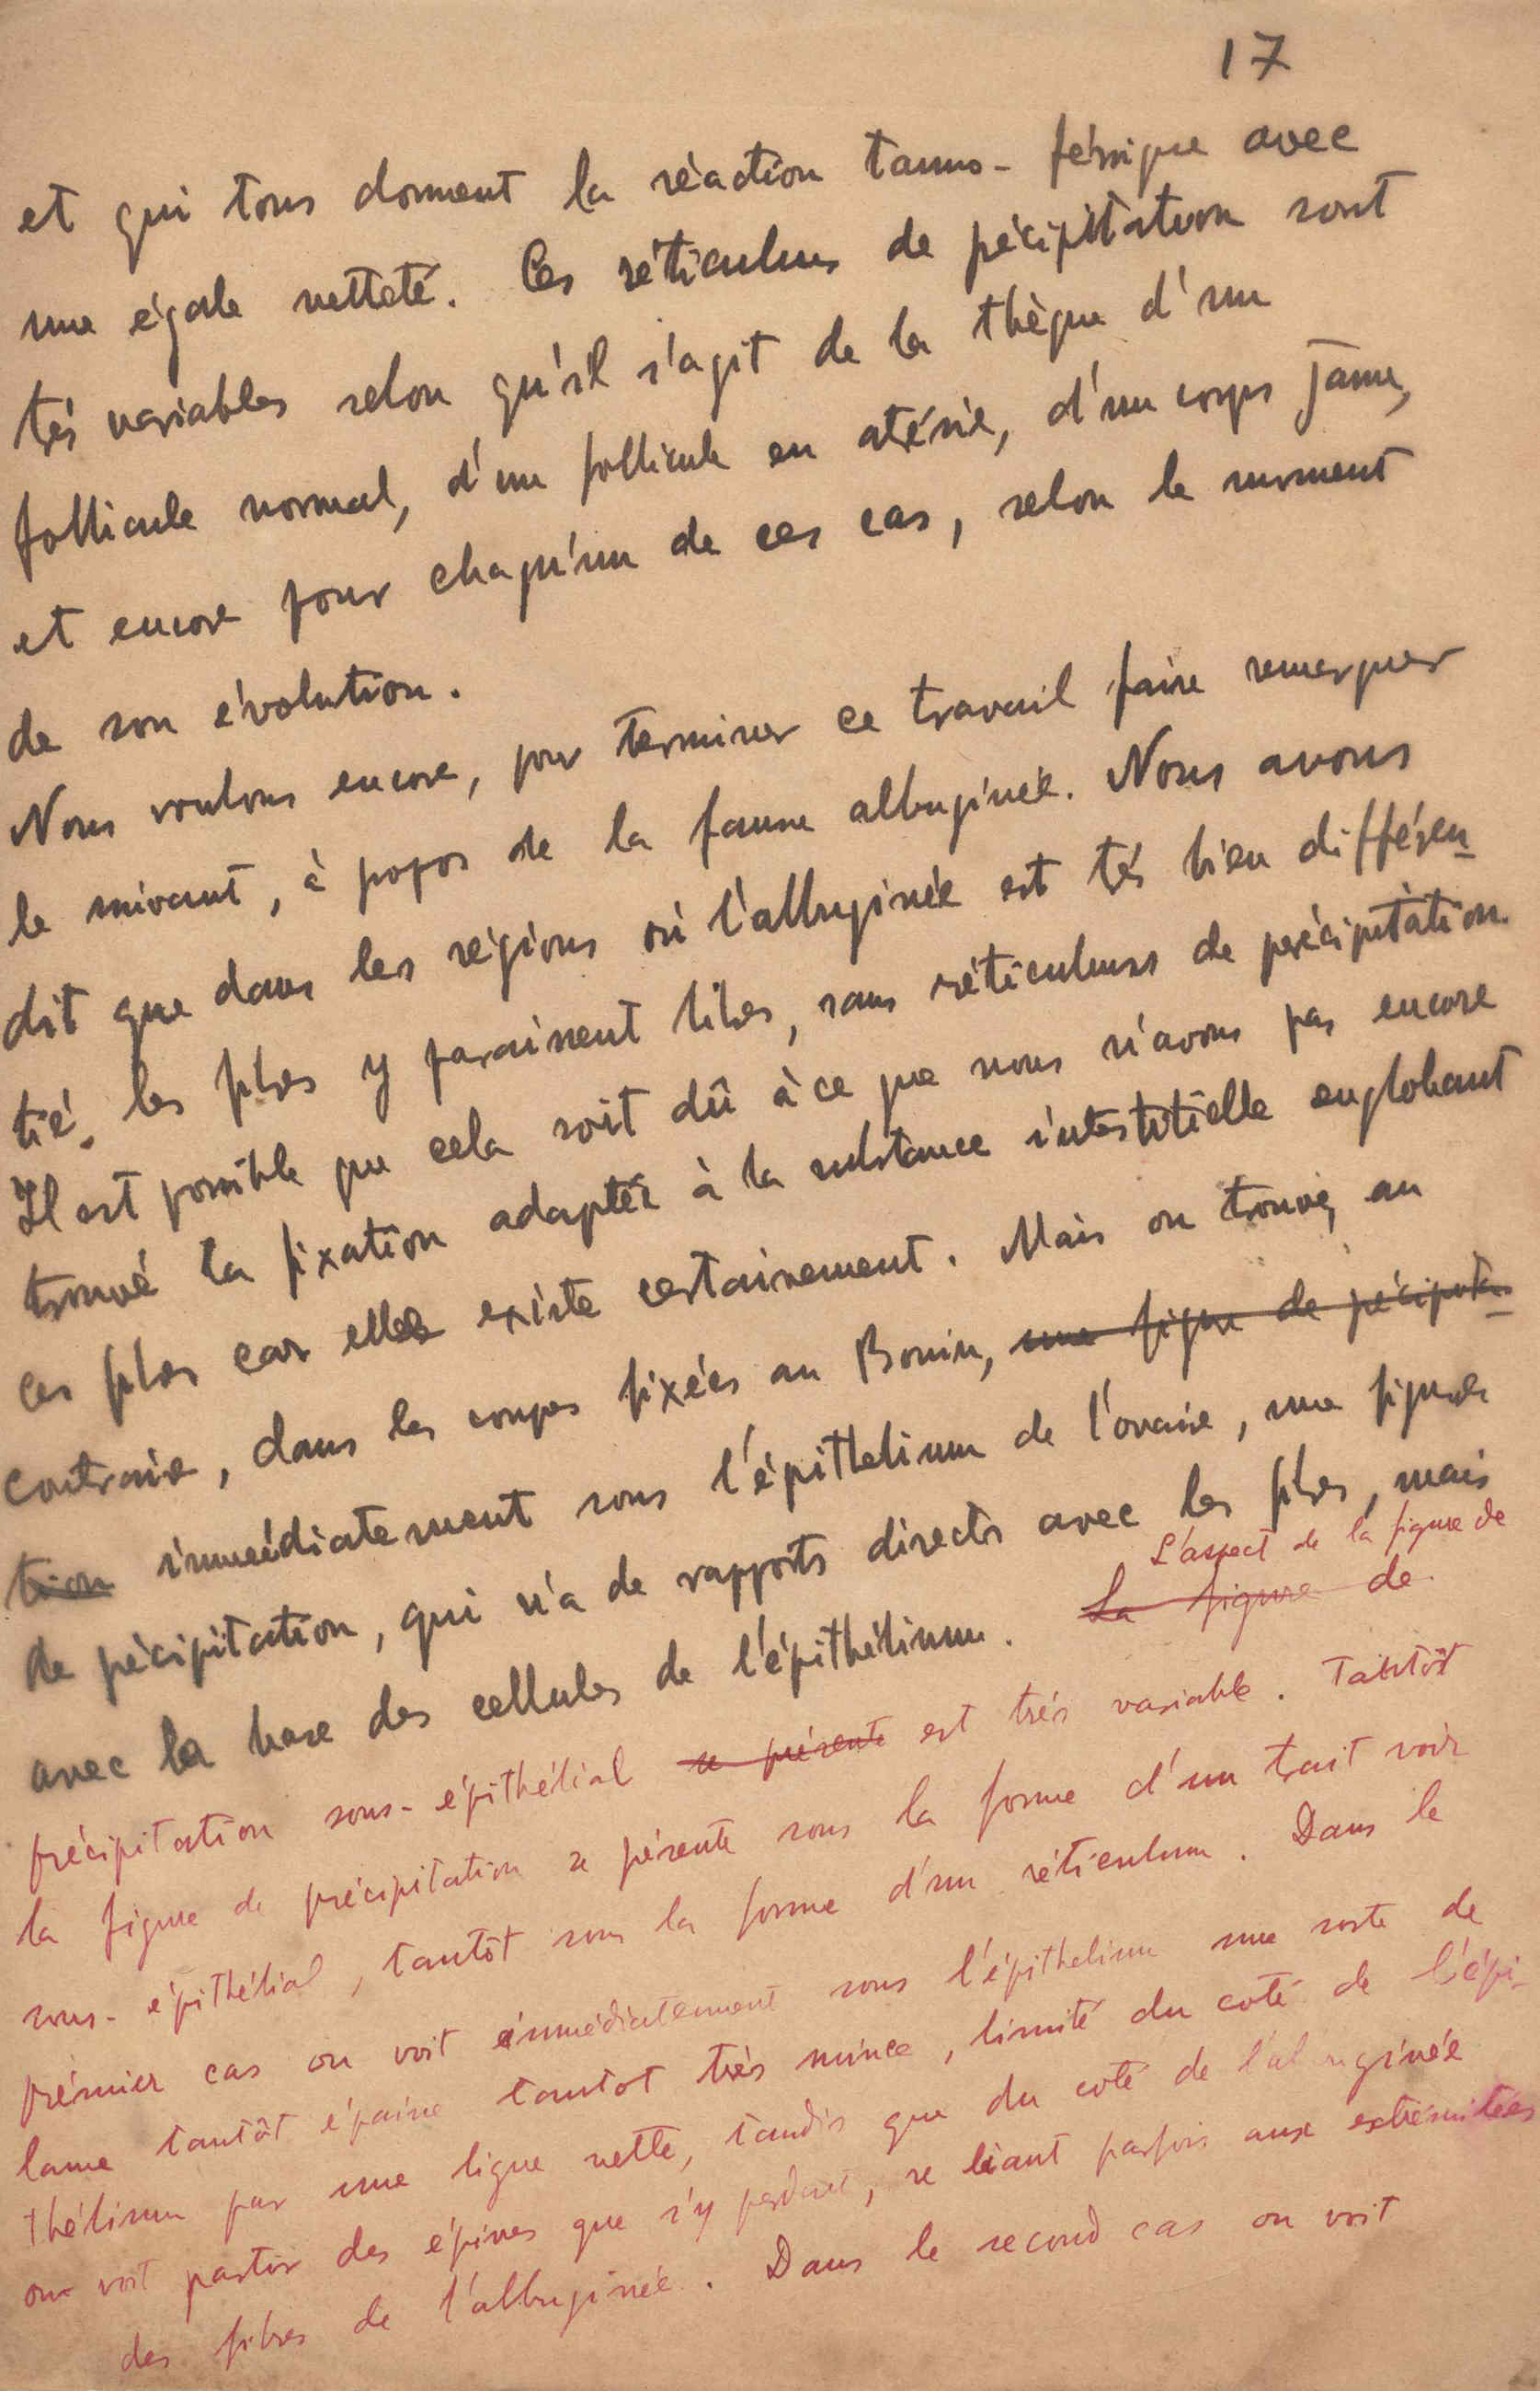 17
et qui tous donnent la réaction tanno-férrique avec
une égale netteté. Ces réticulums de précipitation sont
trés variables selon qu'il s'agit de la thèque d'un
follicule normal, d'un follicule en atrésie, d'un corps jaune,
et encore pour chaqu'un de ces cas, selon le moment
de son évolution.
Nous voulons encore, pour terminer ce travail faire remarquer
le suivant, à propos de la fausse albuginée. Nous avons
dit que dans les régions où l'albuginée est trés bien différen-
tié, les fibres y paraissent libres, sans réticulums de précipitation.
Il est possible que cela soit dû à ce que nous n'avons pas encore
trouvé la fixation adaptée à la substance interstitielle englobant
ces fibres car elle existe certainement. Mais on trouve, au
contraire, dans les coupes fixées au Bouin, une figure de précipita-
tion immédiatement sous l'épithelium de l'ovaire, une figure
de précipitation, qui n'a de rapports directs avec les fibres, mais
L'aspect de la figure de
avec la base des cellules de l'épithélium. La figure de
précipitation sous-épithélial se présente est trés variable. Tantôt
la figure de précipitation se présente sous la forme d'un trait noir
sous-épithélial, tantôt sous la forme d'un réticulum. Dans le
prémier cas on voit immédiatement sous l'épithelium une sorte de
lame tantôt épaisse tantot très mince, limité du coté de l'épi-
thélium par une ligne nette, tandis que du coté de l'albuginée
on voit partir des épines que s'y perdent, se liant parfois aux extrémitées
des fibres de l'albuginée. Dans le second cas on voit